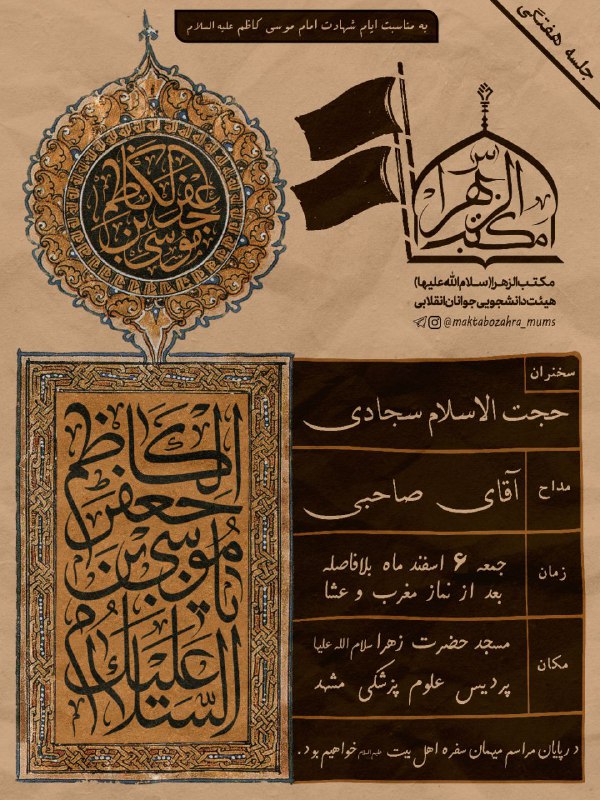 به مناسبت ایام شهادت امام موسی کاظم علیه السلام
جلسه هفتگی
موسی بن جعفر الکاظم
مکتب الزهرا س
مکتب الزهرا (سلام الله علیها)
هیئت دانشجویی جوانان انقلابی
@maktabozahra_mums
السلام علیک
یا موسی بن
جعفر
الکاظم
سخنران
حجت الاسلام سجادی
مداح
آقای صاحبی
زمان
جمعه ۶ اسفند ماه بلافاصله
بعد از نماز مغرب و عشا
مکان
مسجد حضرت زهرا سلام الله علیها
پردیس علوم پزشکی مشهد
در پایان مراسم میهمان سفره اهل بیت علیهم السلام خواهیم بود.